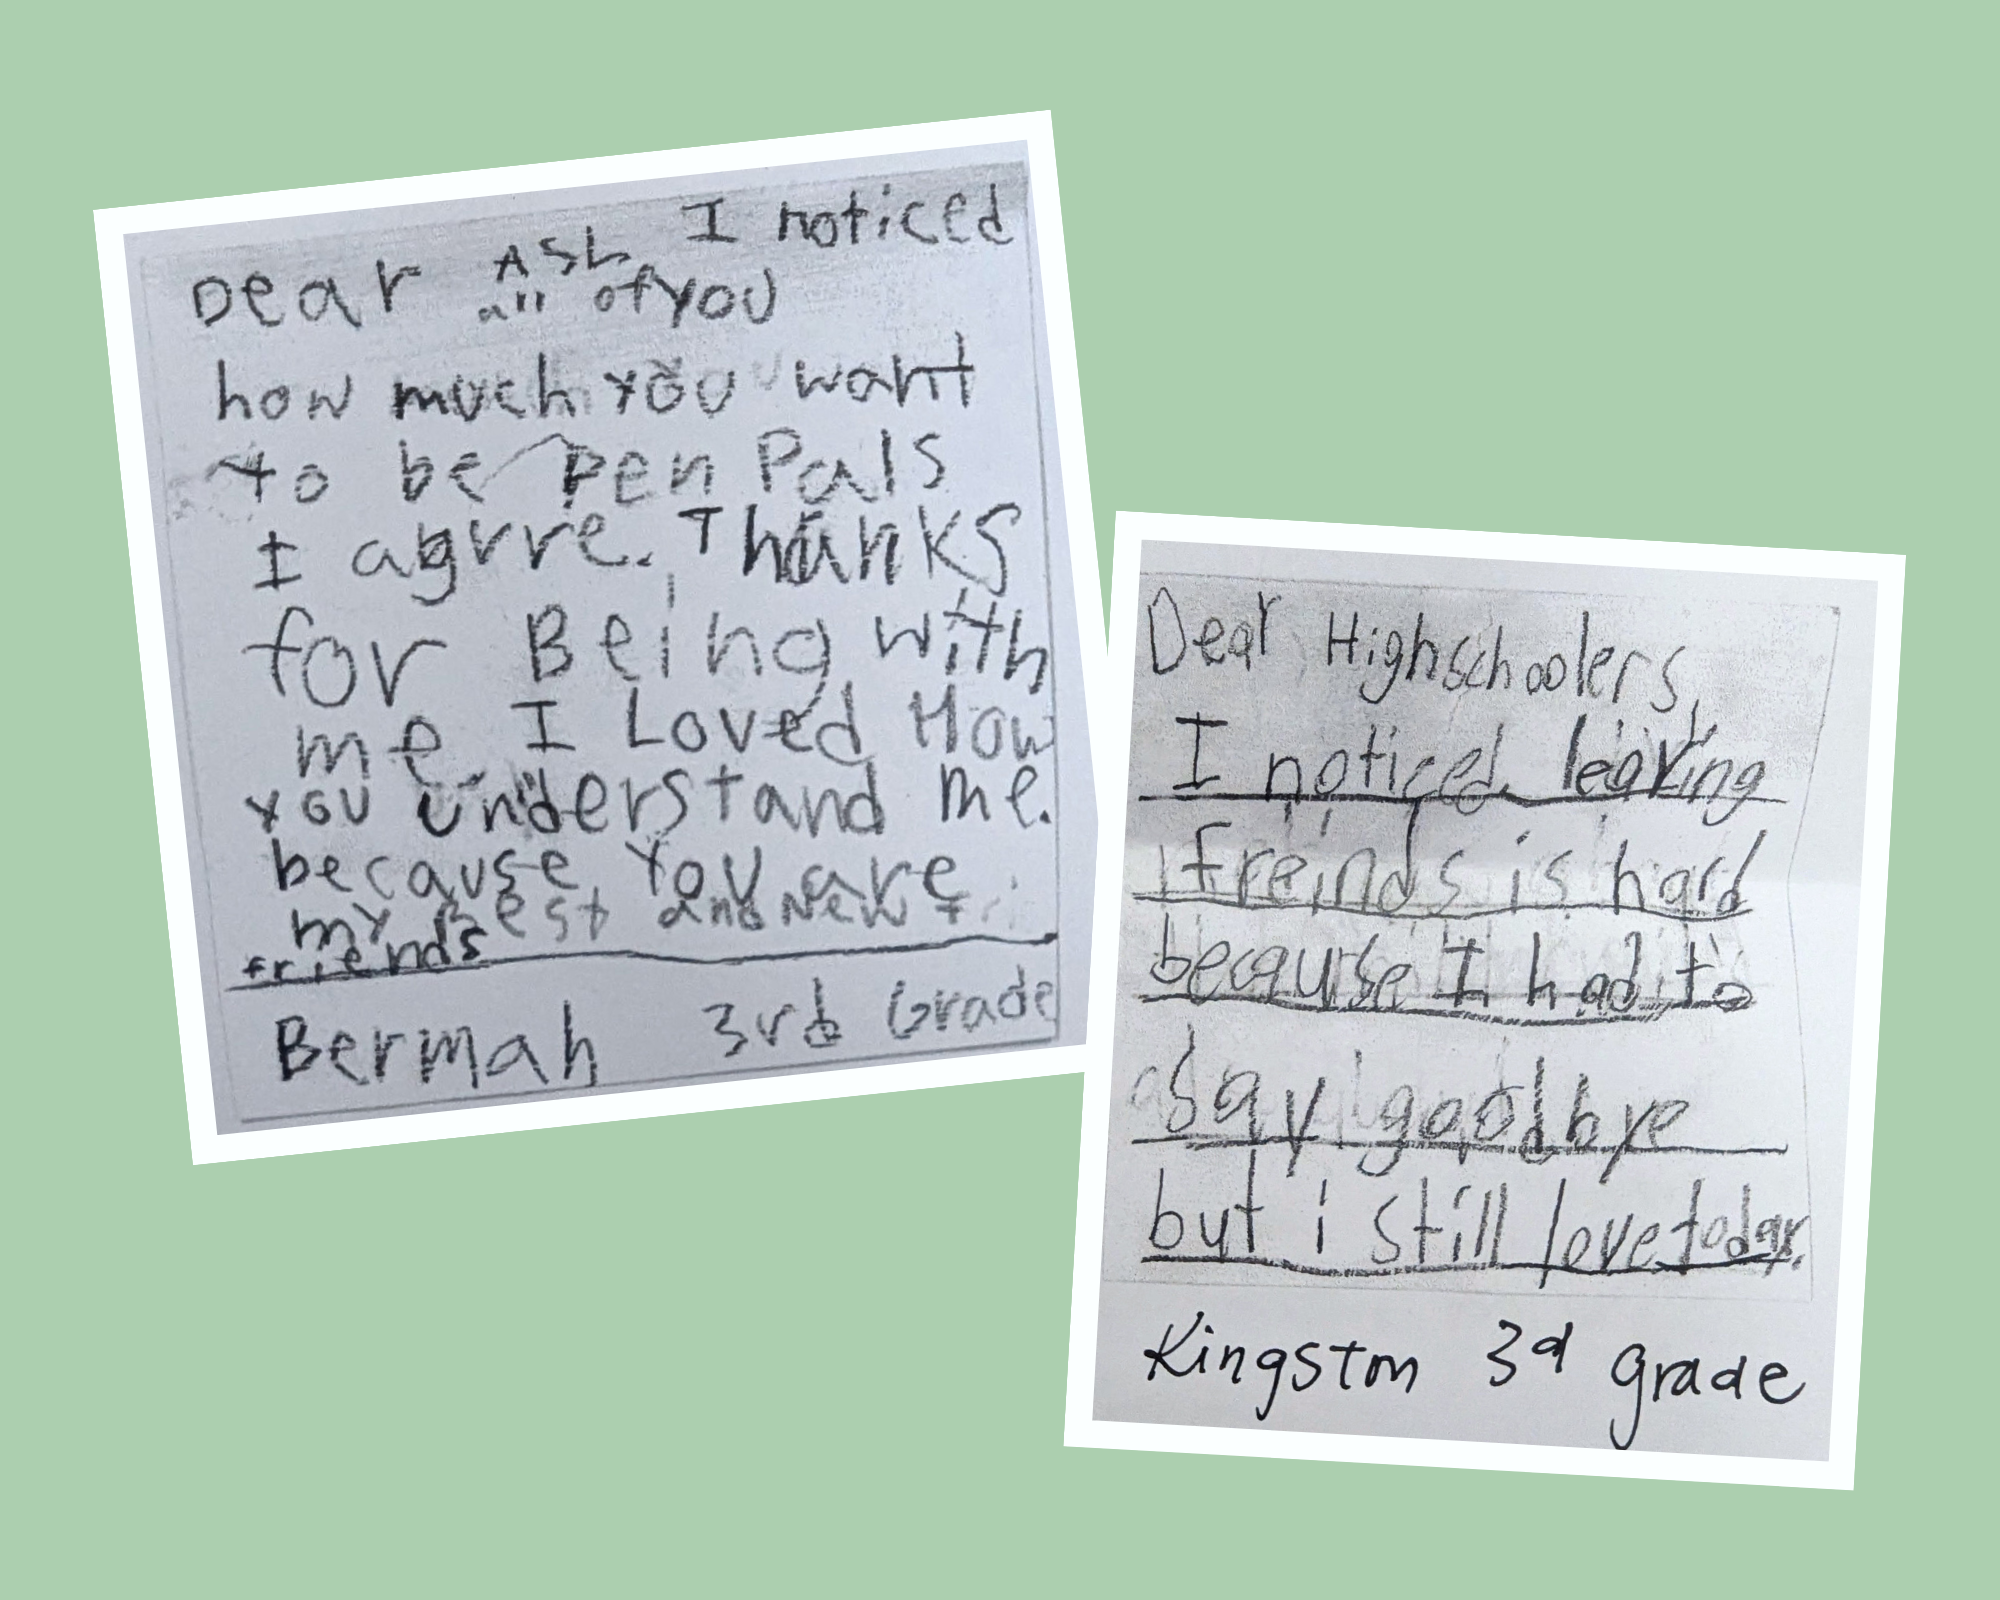 Dear ASL I noticed
all of you
how much you want
to be pen Pals
I agrre. Thanks
for Being with
me. I Loved How
you understand me.
because you are
my Best and New
friends
Bermah 3rd Grade
Dear Highschoolers,
I noticed leaving
freinds is hard
because I had to
say goodbye
but i still love today.
Kingston 3d grade